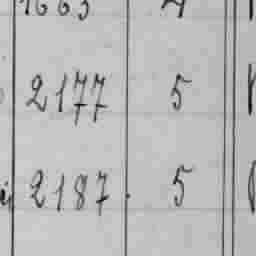 2177 5
2187. 5